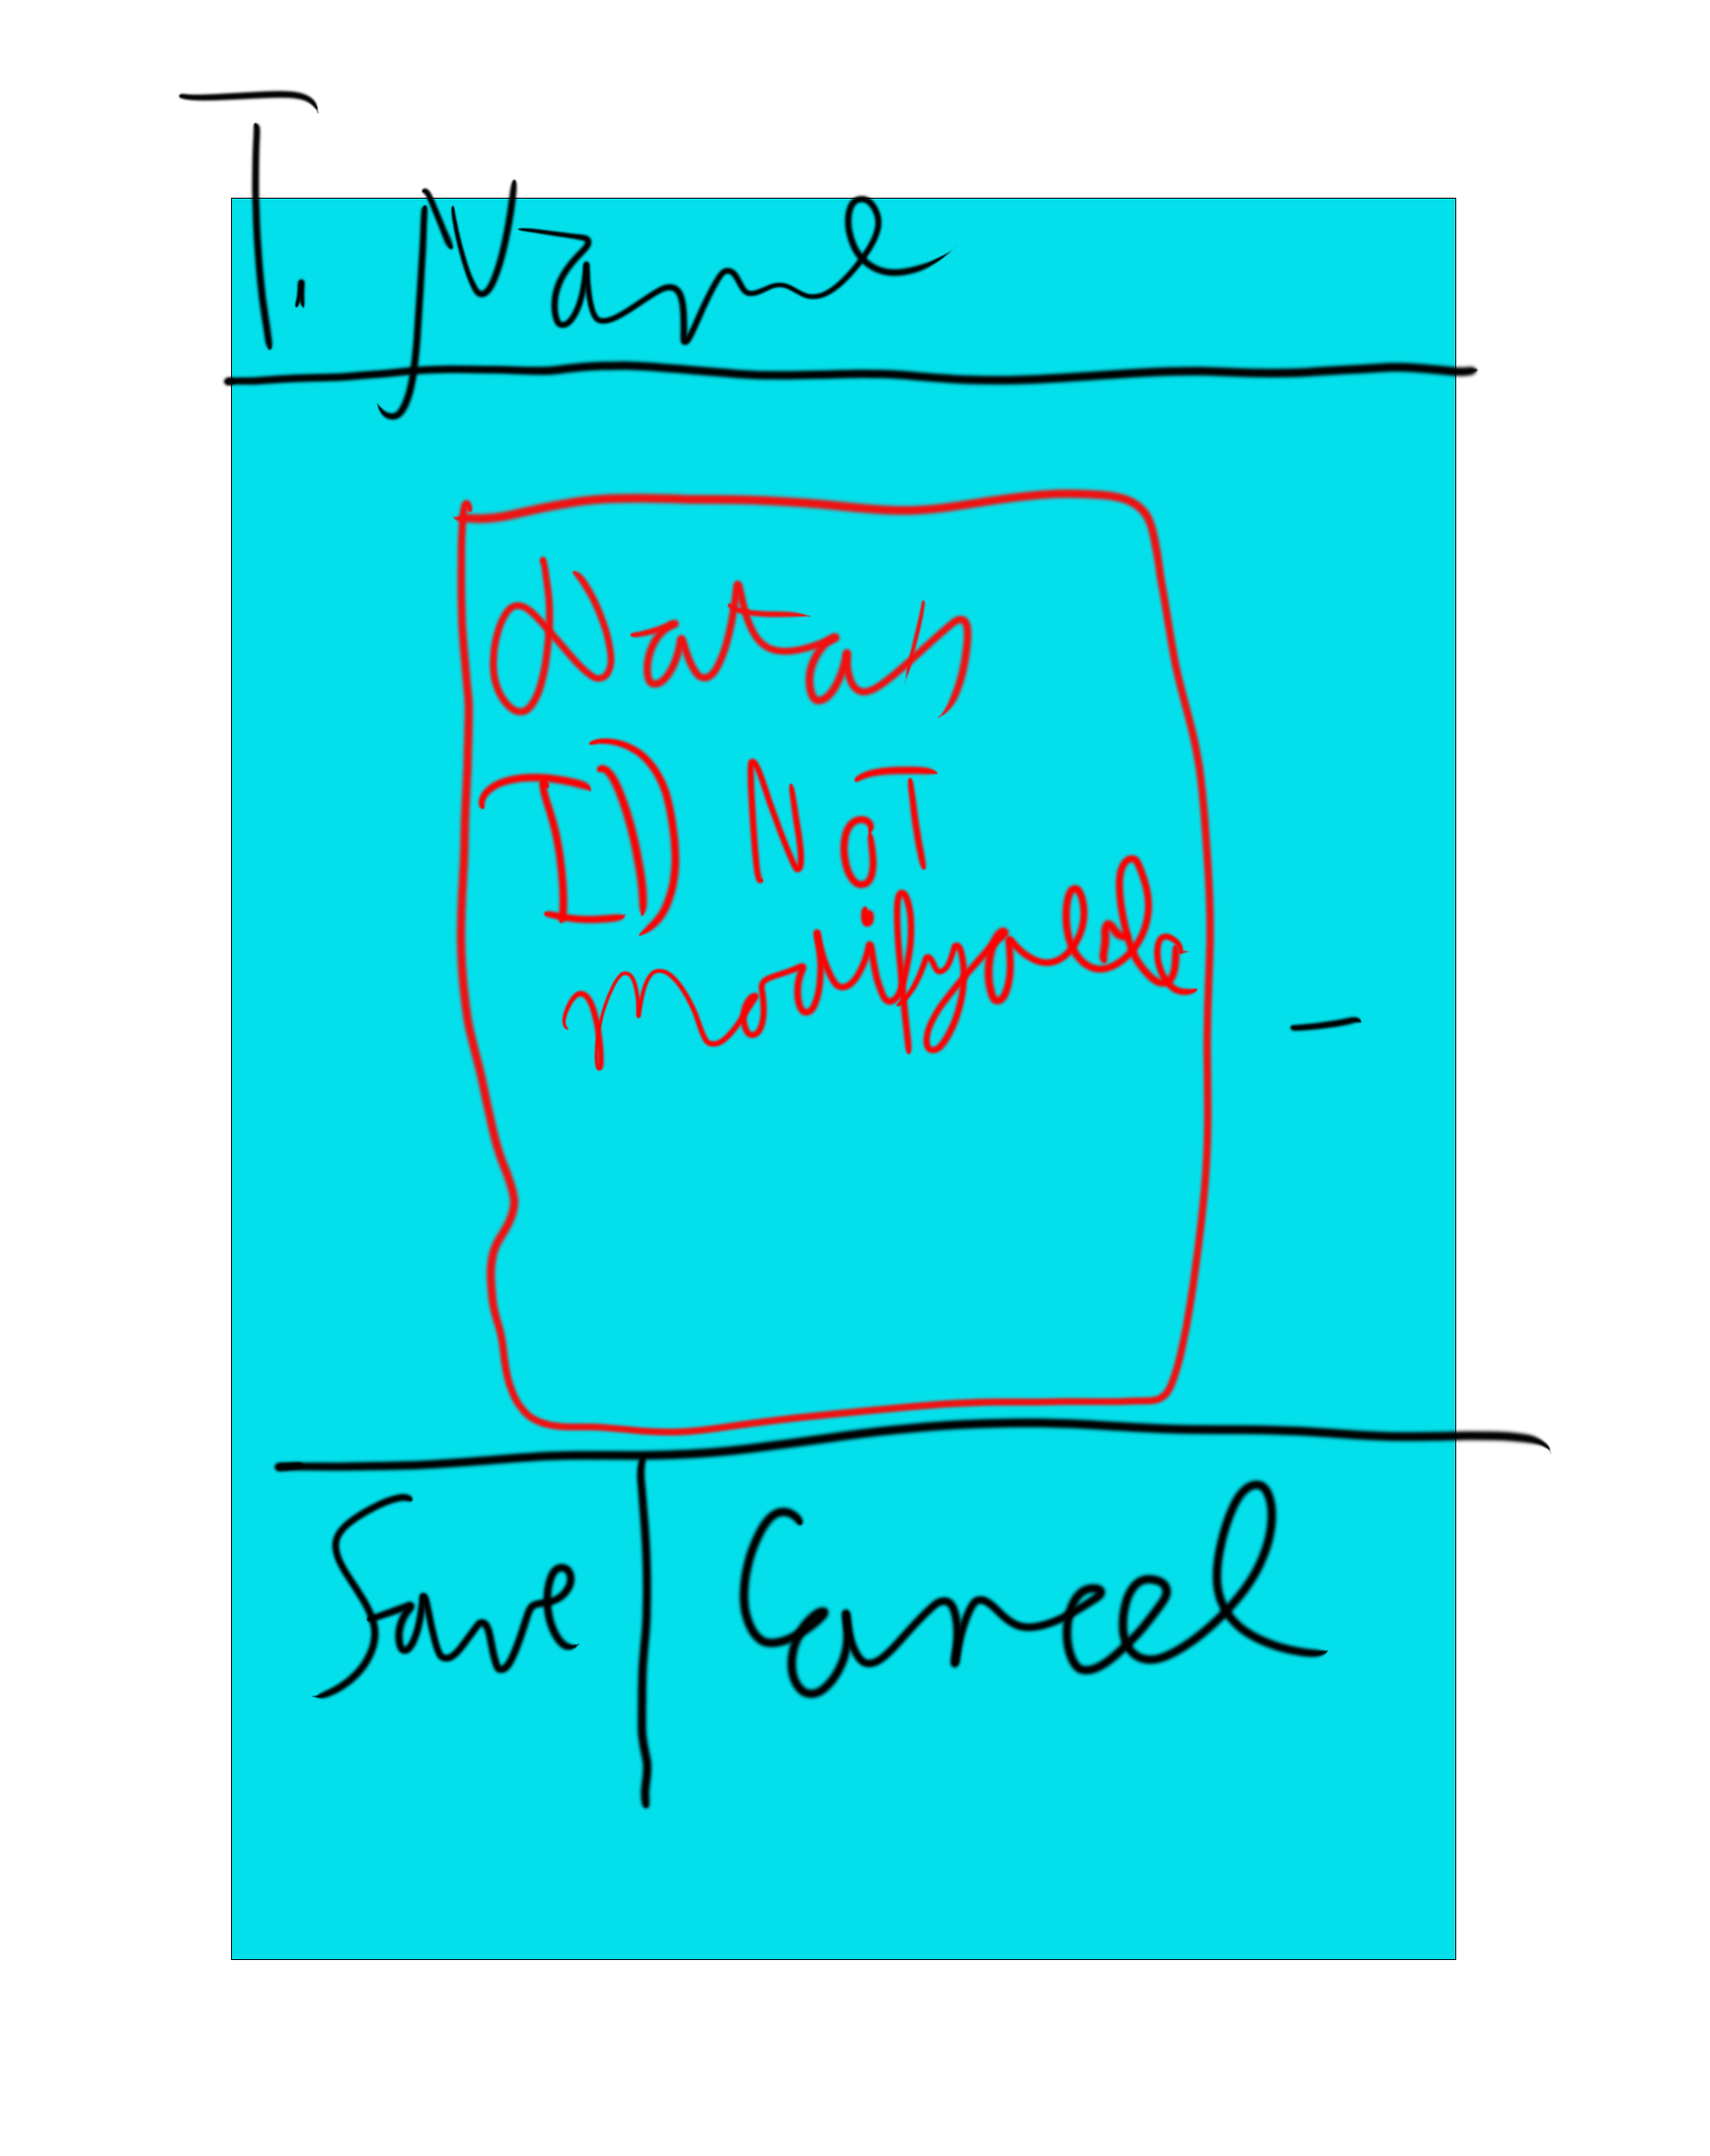 T. Name
Datas
ID NOT
modifyable
Save Cancel